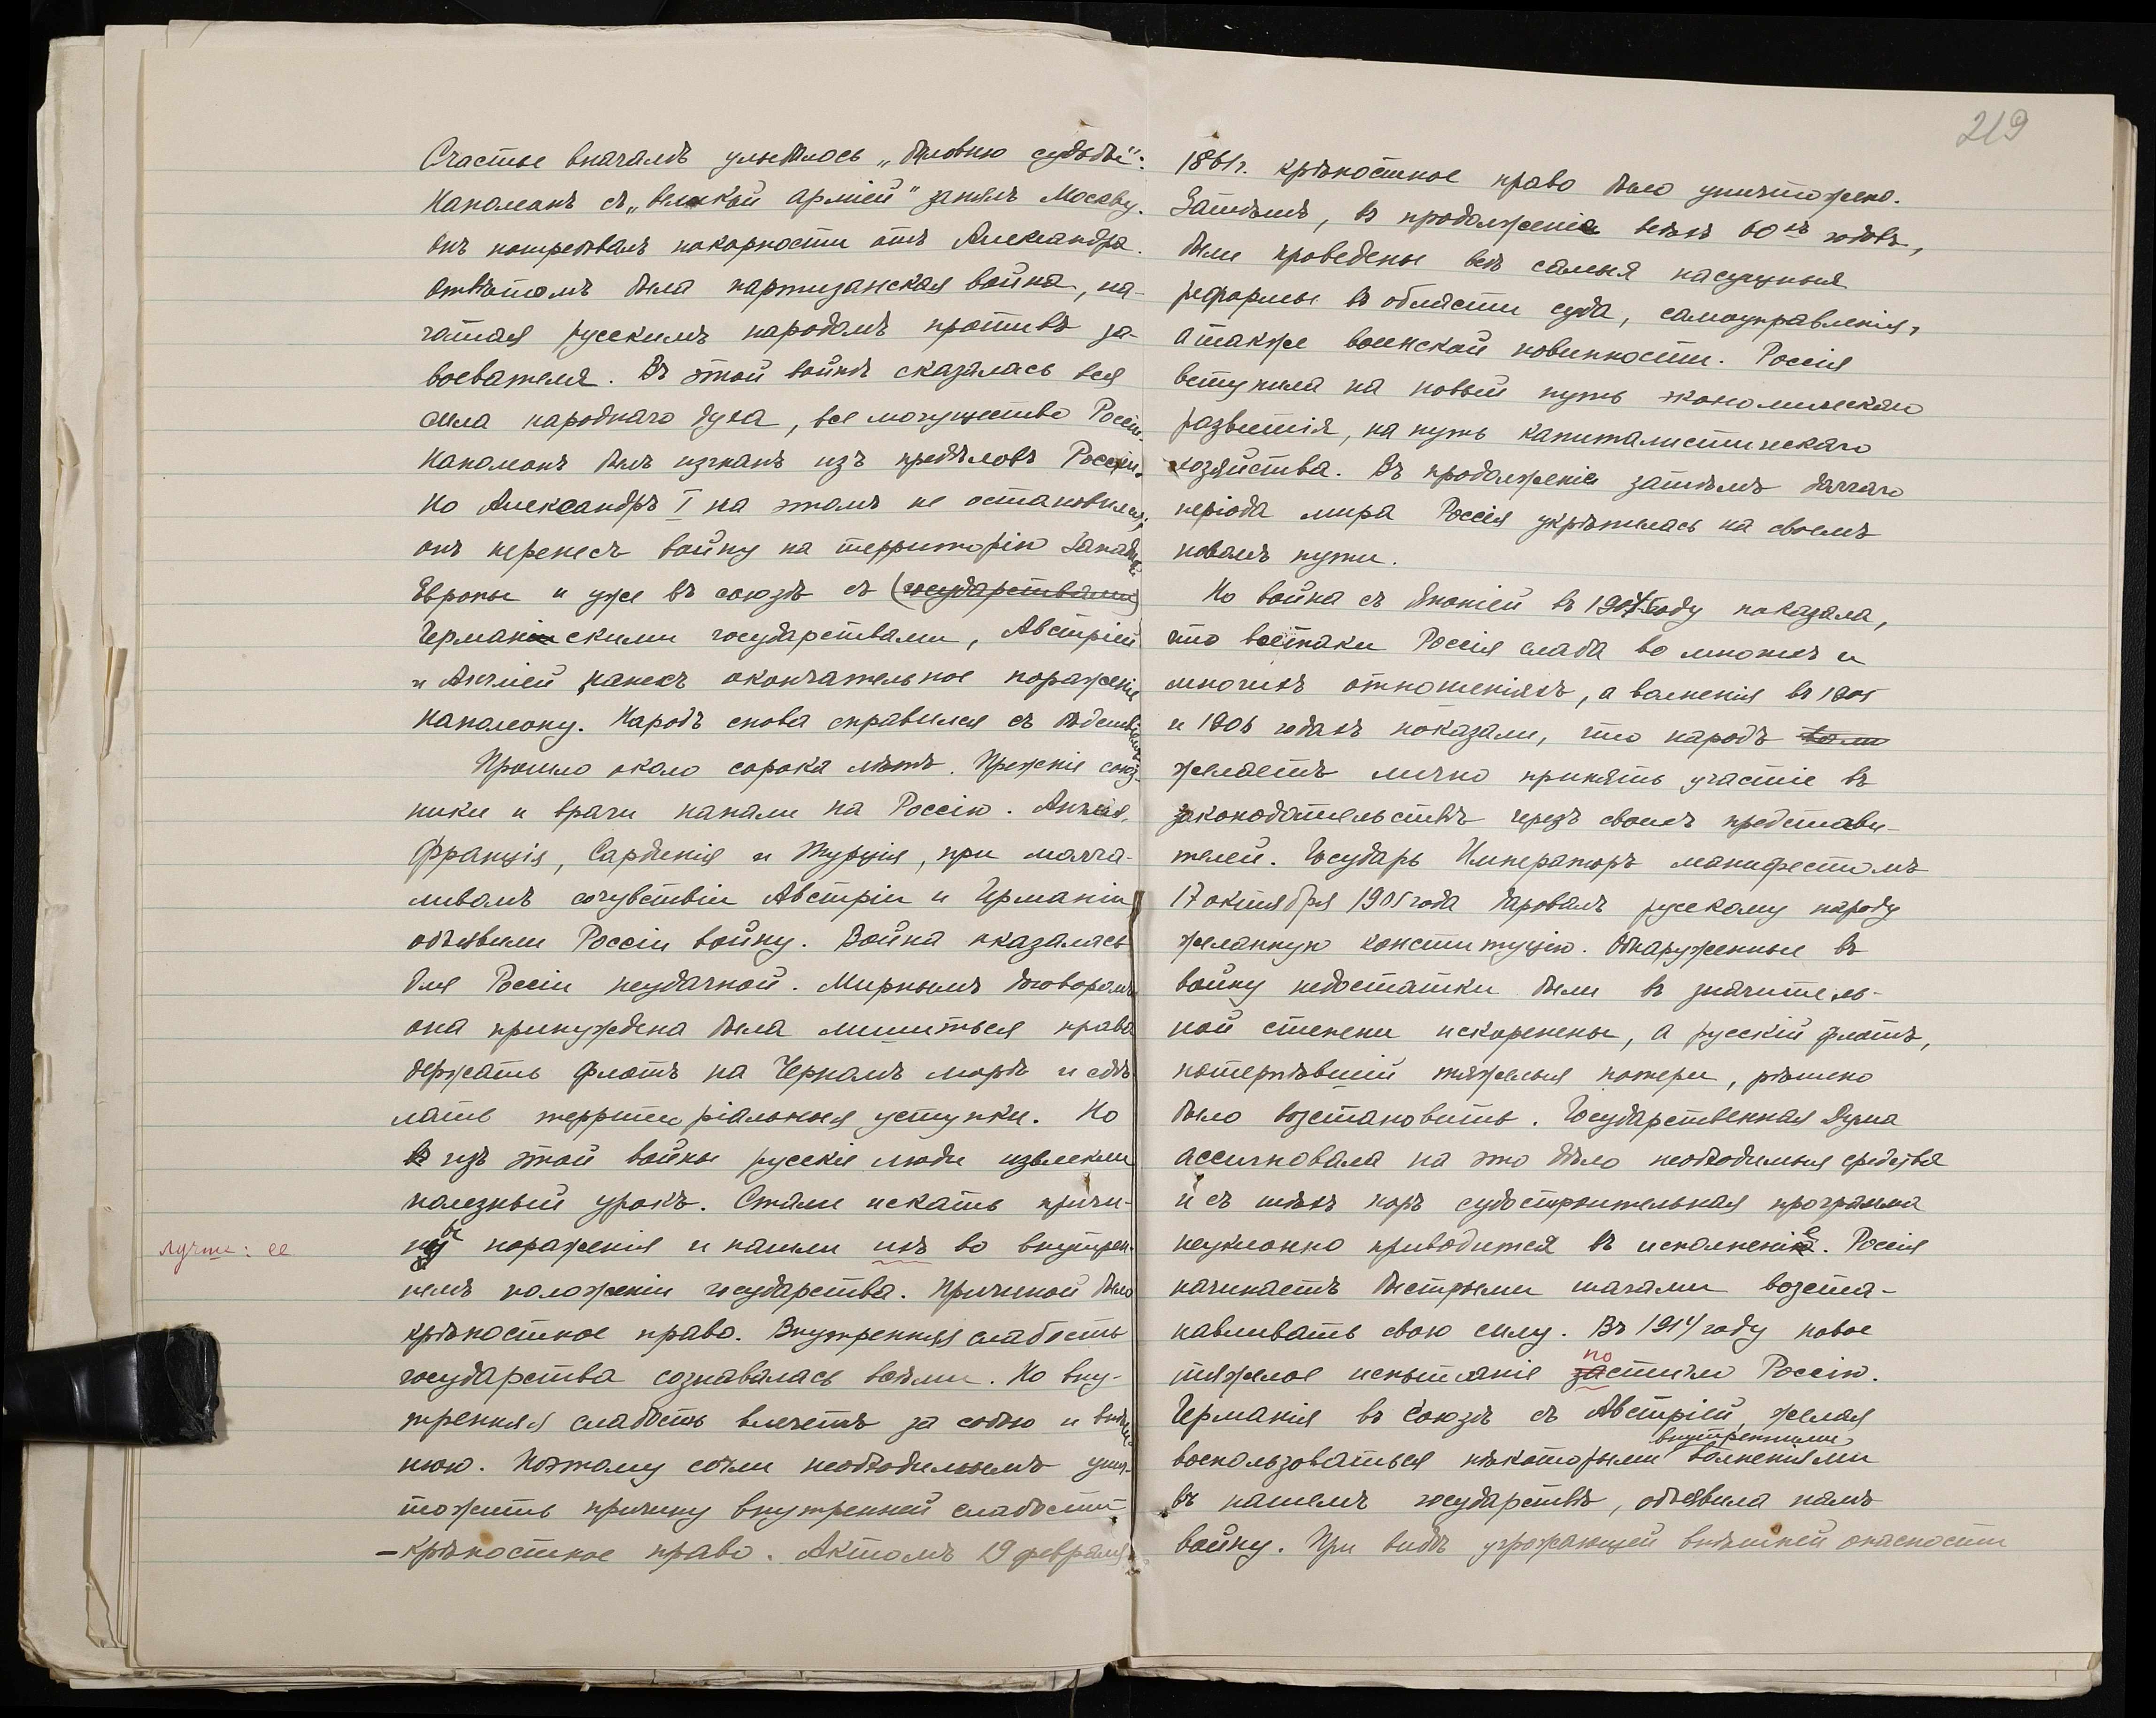 Счастье вначалѣ улыбалось „баловню судьбы“:
Наполеонъ съ „великой арміей“ занялъ Москву.
Онъ потребовалъ покорности отъ Александра.
Отвѣтомъ была партизанская война, на-
чатая русскимъ народомъ противъ за-
воевателя. Въ этой войнѣ сказалась вся
сила народнаго духа, все могущество Россіи.
Наполеонъ былъ изгнанъ изъ предѣловъ Россіи.
Но Александръ I на этомъ не остановился;
онъ перенесъ войну на территорію Западн.
Европы и уже въ союзѣ съ (государствами)
Германскими государствами, Австріей
и Англіей нанесъ окончательное пораженіе
Наполеону. Народъ снова справился съ бѣдствіемъ.
Прошло около сорока лѣтъ. Прежніе союз-
ники и враги напали на Россію. Англія,
Франція, Сардинія и Турція, при молча-
ливомъ сочувствіи Австріи и Германіи
объявили Россіи войну. Война оказалась
для Россіи неудачной. Мирнымъ договоромъ
она принуждена была лишиться права
держать флотъ на Черномъ морѣ и сдѣ-
лать территоріальныя уступки. Но
въ изъ этой войны русскіе люди извлекли
полезный урокъ. Стали искать причи-
ны пораженія и нашли ихъ во внутрен-
лучше: ее
немъ положеніи государства. Причиной было
крѣпостное право. Внутренняя слабость
государства сознавалась всѣми. Но вну-
тренняя слабость влечетъ за собою и внѣш-
нюю. Поэтому сочли необходимымъ унич-
тожить причину внутренней слабости
– крѣпостное право. Актомъ 19 февраля
219
1861 г. крѣпостное право было уничтожено.
Затѣмъ, въ продолженіе всѣхъ 60хъ годовъ,
были проведены всѣ самыя насущныя
реформы въ области суда, самоуправленія,
а также воинской повинности. Россія
вступила на новый путь экономическаго
развитія, на путь капиталистическаго
хозяйства. Въ продолженіи затѣмъ долгаго
періода мира Россія укрѣпилась на своемъ
новомъ пути.
Но война съ Японіей въ 1904 году показала,
что всетаки Россія слаба во многихъ и
многихъ отношеніяхъ, а волненія въ 1905
и 1906 годахъ показали, что народъ
желаетъ лично принять участіе въ
законодательствѣ черезъ своихъ представи-
телей. Государь Императоръ манифестомъ
17 октября 1905 года даровалъ русскому народу
желанную конституцію. Обнаруженные въ
войну недостатки были въ значитель-
ной степени искоренены, а русскій флотъ,
потерпѣвшій тяжелыя потери, рѣшено
было возстановить. Государственная Дума
ассигновала на это дѣло необходимыя средства
и съ тѣхъ поръ судостроительная программа
неуклонно приводится въ исполненіе. Россія
начинаетъ быстрыми шагами возста-
навливать свою силу. Въ 1914 году новое
по
тяжелое испытаніе застигло Россію.
Германія въ союзѣ съ Австріей, желая
внутренними
воспользоваться нѣкоторыми волненіями
въ нашемъ государствѣ, объявила намъ
войну. При видѣ угрожающей внѣшней опасности